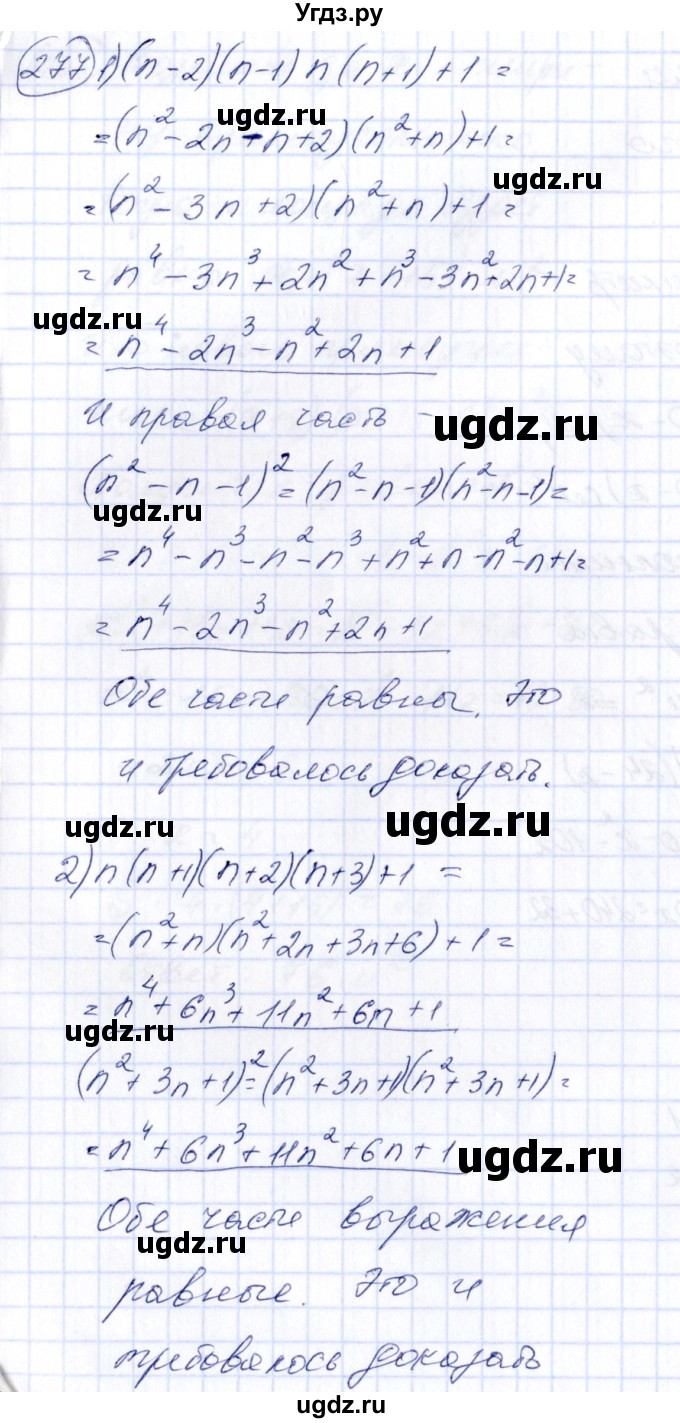 Угдз.ру
277 1) (n-2)(n-1)n(n+1)+1=
=(n²-2n-n+2)(n²+n)+1=
ugdz.ru
ugdz.ru
=(n²-3n+2)(n²+n)+1=
=n⁴-3n³+2n²+n³-3n²+2n+1=
ugdz.ru
=n⁴-2n³-n²+2n+1
И правая часть -
ugdz.ru
(n²-n-1)²=(n²-n-1)(n²-n-1)=
ugdz.ru
=n⁴-n³-n²-n³+n²+n-n²-n+1=
=n⁴-2n³-n²+2n+1
Обе части равны. Это
и требовалось доказать.
ugdz.ru
ugdz.ru
2) n(n+1)(n+2)(n+3)+1=
=(n²+n)(n²+2n+3n+6)+1=
=n⁴+6n³+11n²+6n+1
ugdz.ru
(n²+3n+1)²=(n²+3n+1)(n²+3n+1)=
=n⁴+6n³+11n²+6n+1
ugdz.ru
Обе части выражения
ugdz.ru
равные. Это и
требовалось доказать
ugdz.ru